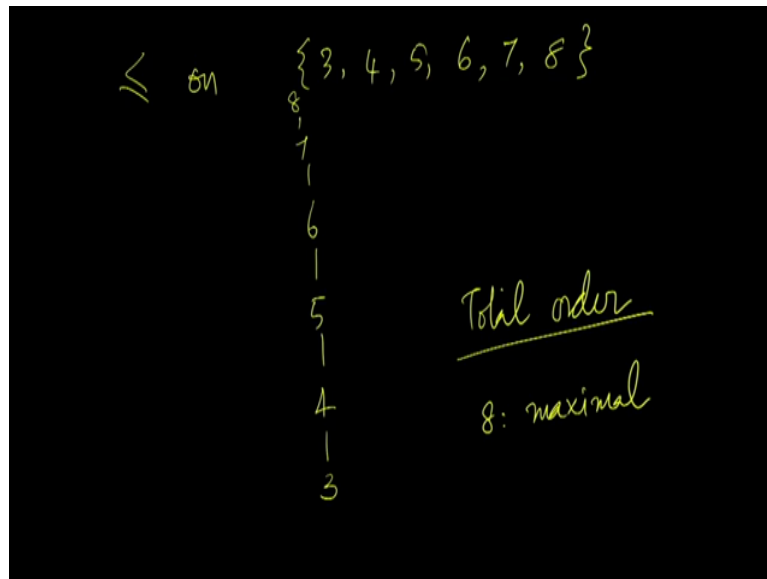 ≤ on {3, 4, 5, 6, 7, 8}
8
7
6
5
Total order
4
8: maximal
3